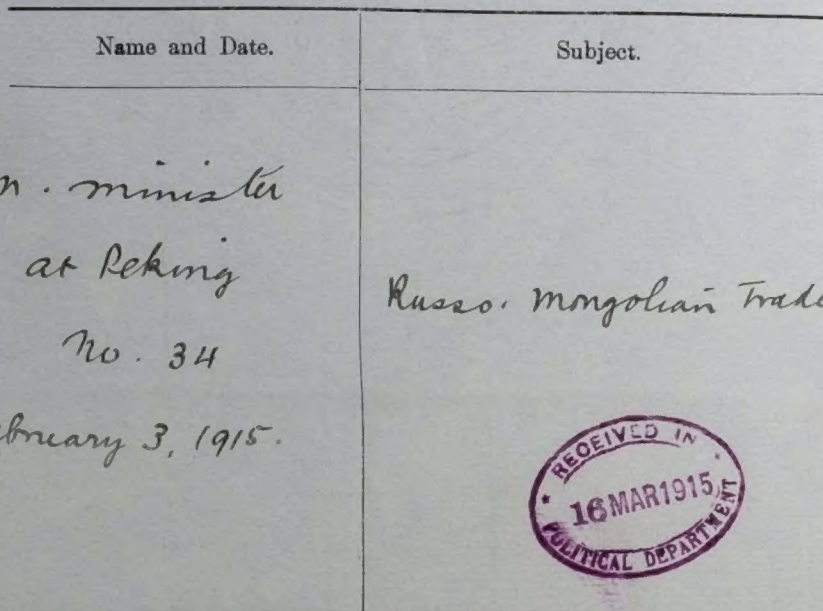 Name and Date.
Subject.
minister
at Peking
No. 34
February 3, 1915.
Russo. Mongolian Trade
RECEIVED IN
16 MAR 1915
POLITICAL DEPARTMENT